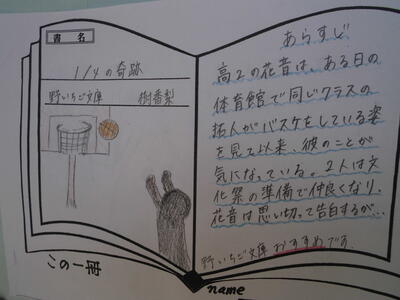 書名
1/4の奇跡
野いちご文庫 樹香梨
この一冊
あらすじ
高2の花音は、ある日の
体育館で同じクラスの
拓人がバスケをしている姿
を見て以来、彼のことが
気になっている。2人は文
化祭の準備で仲良くなり、
花音は思い切って告白するが…
野いちご文庫おすすめです
name